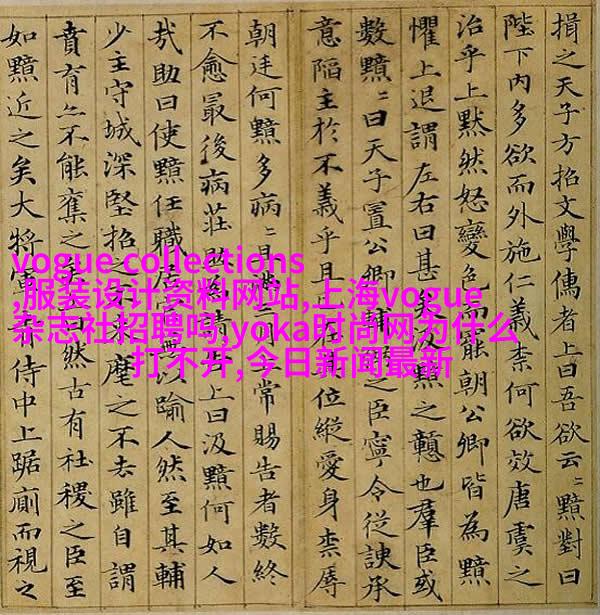 揖之天子方招文學儒者上曰吾欲云〻黯對曰
陛下內多欲而外施仁義柰何欲效唐虞之
治乎上黙然怒變色而罷朝公卿皆為黯
懼上退謂左右曰甚矣汲黯之戇也羣臣或
數黯〻曰天子置公卿輔弼之臣寧令従諛承
意陥主於不義乎且已在其位縱愛身柰辱
朝廷何黯多病〻且滿三月上常賜告者數終
不愈最後病莊助為請告上曰汲黯何如人
㢤助曰使黯任職居官無以踰人然至其輔
少主守城深堅招之不来麾之不去雖自謂
賁育亦不能奪之矣上曰然古有社稷之臣至
如黯近之矣大將軍青侍中上踞廁而視之
vogue collections
,服装设计资料网站,上海vogue
杂志社招聘吗,yoka时尚网为什么
打不开,今日新闻最新